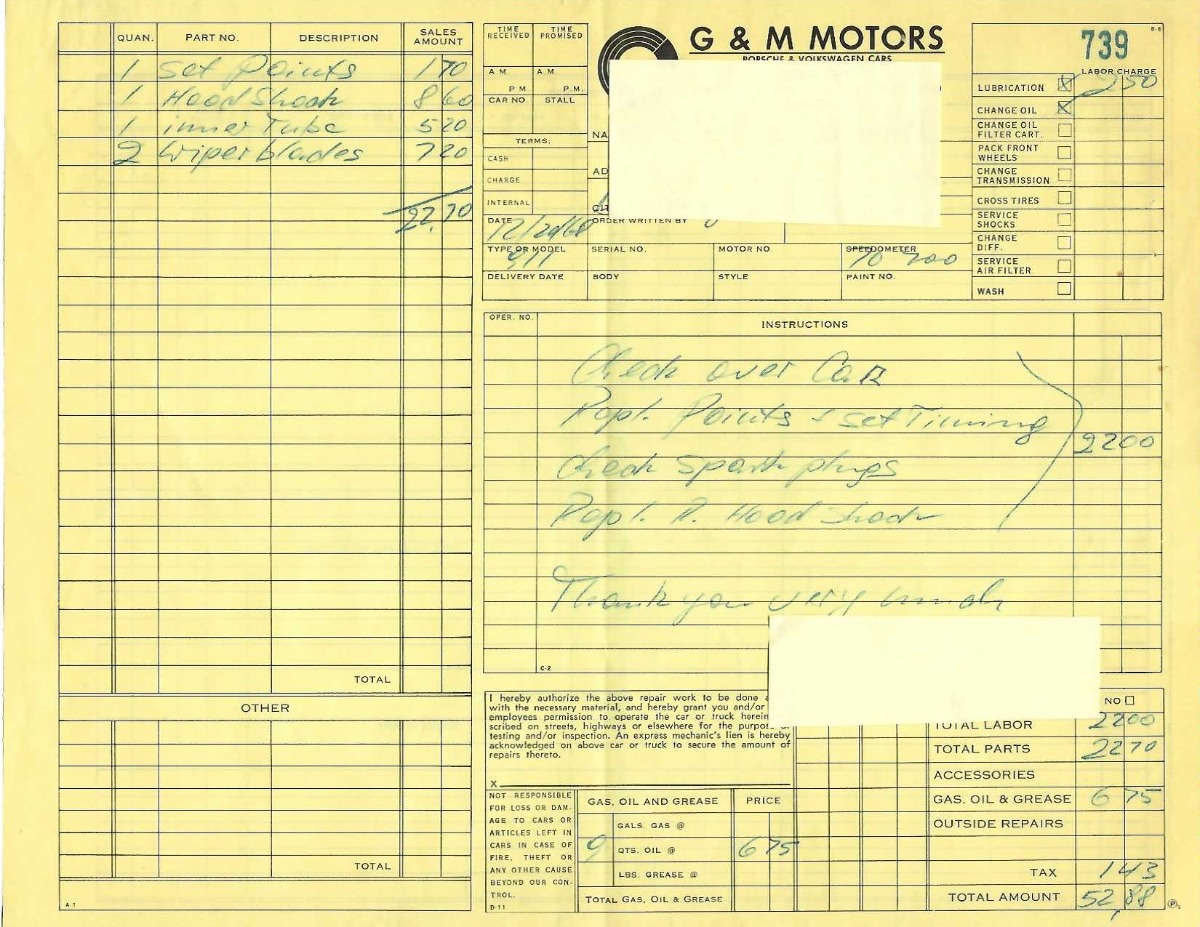 QUAN. PART NO. DESCRIPTION SALES AMOUNT
1 Set Points 1 70
1 Hood Shock 8 60
1 inner Tube 5 20
2 Wiper blades 7 20
22,70
TOTAL
OTHER
TOTAL
A-1
TIME RECEIVED TIME PROMISED
A M A.M
P M P.M.
CAR NO. STALL
TERMS:
CASH
CHARGE
INTERNAL
G & M MOTORS
PORSCHE & VOLKSWAGEN CARS
NA
AD
DATE ORDER WRITTEN BY
TYPE OR MODEL SERIAL NO. MOTOR NO. SPEEDOMETER
911
DELIVERY DATE BODY STYLE PAINT NO.
739
LABOR CHARGE
LUBRICATION 2 50
CHANGE OIL
CHANGE OIL FILTER CART.
PACK FRONT WHEELS
CHANGE TRANSMISSION
CROSS TIRES
SERVICE SHOCKS
CHANGE DIFF.
SERVICE AIR FILTER
WASH
OPER. NO. INSTRUCTIONS
Check over Car
Repl. Points & set Timing
2200
Check spark plugs
Repl. R. Hood shock
Thank you very much
C-2
I hereby authorize the above repair work to be done
with the necessary material, and hereby grant you and/or
employees permission to operate the car or truck herein
scribed on streets, highways or elsewhere for the purpose
testing and/or inspection. An express mechanic's lien is hereby
acknowledged on above car or truck to secure the amount of
repairs thereto.
X
NOT RESPONSIBLE
FOR LOSS OR DAM-
AGE TO CARS OR
ARTICLES LEFT IN
CARS IN CASE OF
FIRE, THEFT OR
ANY OTHER CAUSE
BEYOND OUR CON-
TROL.
D-11
GAS, OIL AND GREASE PRICE
GALS. GAS @
9 QTS. OIL @ 6 75
LBS. GREASE @
TOTAL GAS, OIL & GREASE
NO
TOTAL LABOR 2200
TOTAL PARTS 2270
ACCESSORIES
GAS, OIL & GREASE 6 75
OUTSIDE REPAIRS
TAX 1 43
TOTAL AMOUNT 52,88